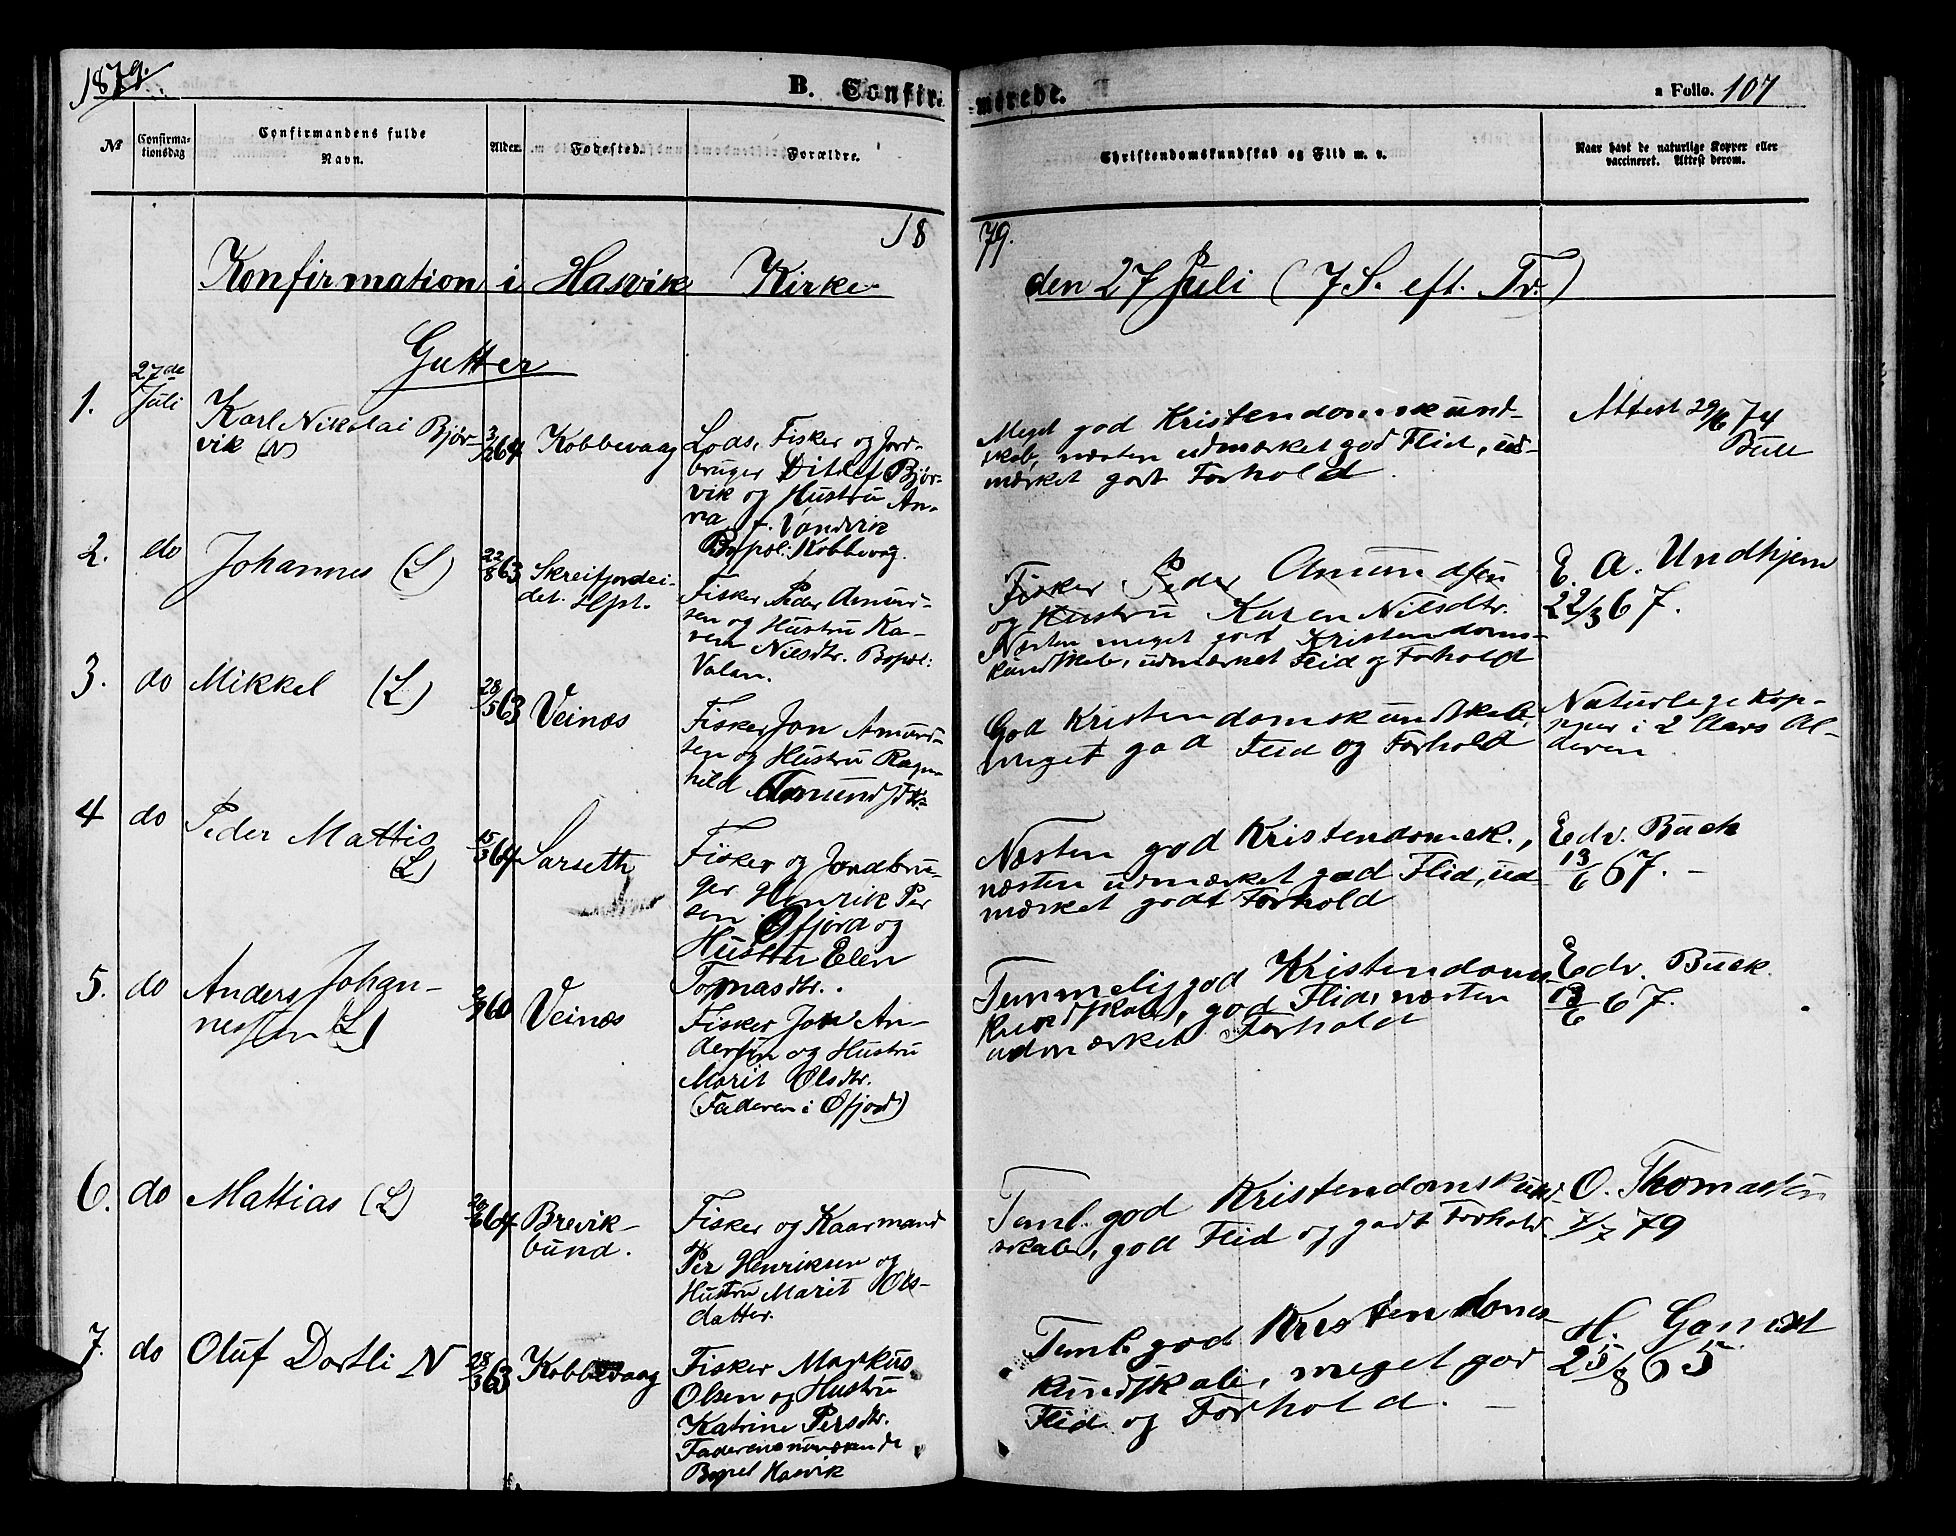 1879.
B. Confir-
merede.
a Folio. 107
№
Confirma-
tionsdag
Confirmandens fulde
Navn.
Alder.
Fødested.
Forældre.
Christendomskundskab og Flid m. v.
Naar havt de naturlige Kopper eller
vaccineret. Attest derom.
18
79.
Konfirmation i Hasvik Kirke
den 27 Juli (7 S. eft. Tr.)
Gutter
1.
27de
Juli
Karl Nikolai Bjør-
vik (N)
3/2 64
Kobbevaag
Lods, Fisker og Jord-
bruger Ditlef Bjør-
vik og Hustru An-
na f. Vandvik
Bopæl: Kobbevag.
Meget god Kristendomskund-
skab, næsten udmærket god Flid, ud-
mærket godt Forhold
Attest 29/6 74
Bull
2.
do
Johannes (L)
22/8 63
Skreifjordei-
det. Hft.
Fisker Peder Amund-
sen og Hustru Ka-
ren Nilsdtr. Bopæl:
Valan.
Fisker Peder Amundsen
og Hustru Karen Nilsdtr.
Næsten meget god Kristendoms-
kundskab, udmærket Flid og Forhold
E. A. Undhjem
22/3 67.
3.
do
Mikkel (L)
28/5 63
Veinæs
Fisker Jon Amund-
sen og Hustru Ragn-
hild Amundsdtr.
God Kristendomskundskab,
meget god Flid og Forhold
Naturlige Kop-
per i 2 Aars Al-
deren
4
do
Peder Mattis
(L)
15/3 64
Sarseth
Fisker og Jordbru-
ger Henrik Per
sen Øfjord og
Hustru Elen
Tomasdtr.
Næsten god Kristendomsk.,
næsten udmærket god Flid, ud
mærket godt Forhold
Edv. Buck
13/6 67.
5.
do
Anders Johan-
nessen (L)
60
Veinæs
Fisker Jon An-
dersen og Hustru
Marit Olsdtr.
(Faderen i Øfjord)
Temmelig god Kristendoms
kundskab, god Flid, næsten
udmærket Forhold
Edv. Buck.
13/6 67.
6.
do
Mattias (L)
64
Brevik-
bund.
Fisker og Kaarmand
Per Henriksen og
Hustru Marit Ols-
datter.
Teml. god Kristendomskund
skab, god Flid og godt Forhold
O. Thomassen
7/7 79
7.
do
Oluf Dortli N
28/3 63
Kobbevaag
Fisker Markus
Olsen og Hustru
Katrine Persdtr.
Faderens nuværende
Bopæl Hasvik
Teml. god Kristendoms-
kundskab, meget god
Flid og Forhold.
H.
25/8 65